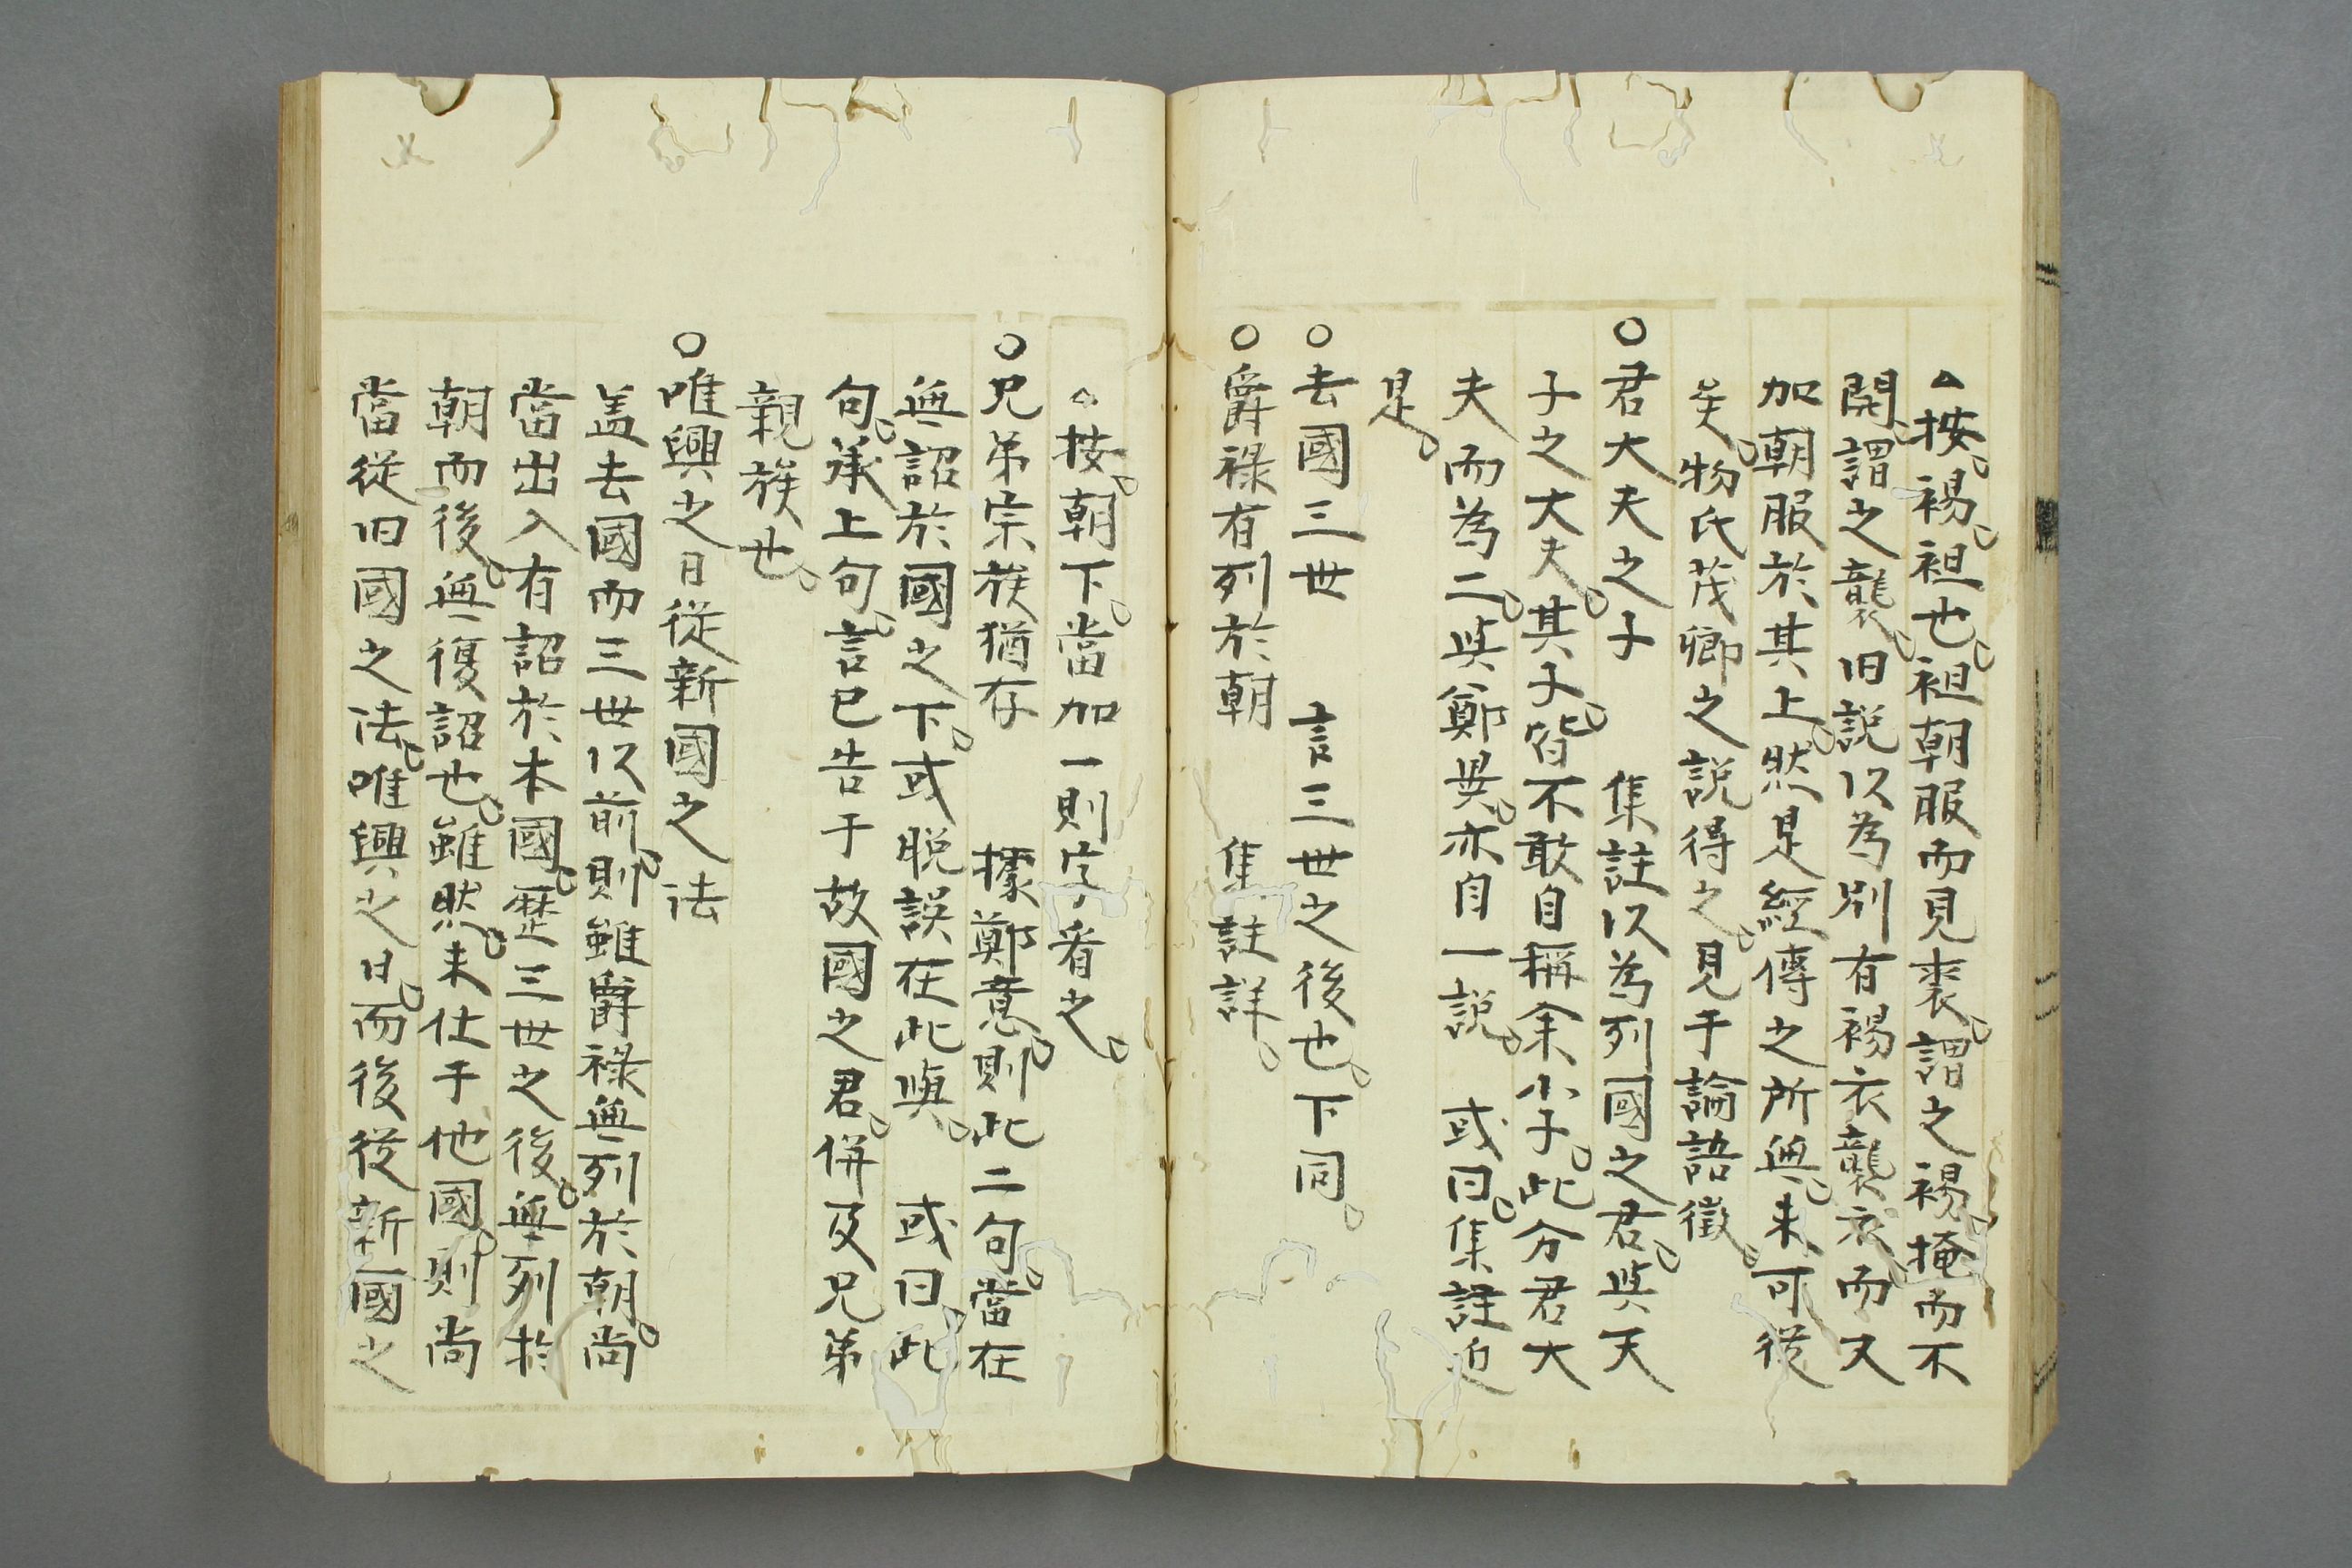 △按。裼。袒也。袒朝服而見裘。謂之裼。掩而不
開。謂之襲。旧説以為別有裼衣襲衣。而又
加朝服於其上。然是經傳之所無。未可從
矣。物氏茂卿之説得之。見于論語徴。
○君大夫之子　集註以為列國之君。与天
子之大夫。其子。皆不敢自稱余小子。此分君大
夫而為二。与鄭異。亦自一説。　或曰。集註近
是。
○去國三世　言三世之後也。下同。
○爵祿有列於朝　集註詳。
△按。朝下。當加一則字看之。
○兄弟宗族猶存　據鄭意。則此二句。當在
無詔於國之下。或脱誤在此與。　或曰。此
句。承上句。言已告于故國之君。併及兄弟
親族也。
○唯興之日從新國之法
盖去國而三世以前。則雖爵祿無列於朝。尚
當出入有詔於本國。歴三世之後。無列於
朝而後。無復詔也。雖然。未仕于他國。則尚
當從旧國之法。唯興之日。而後從新國之